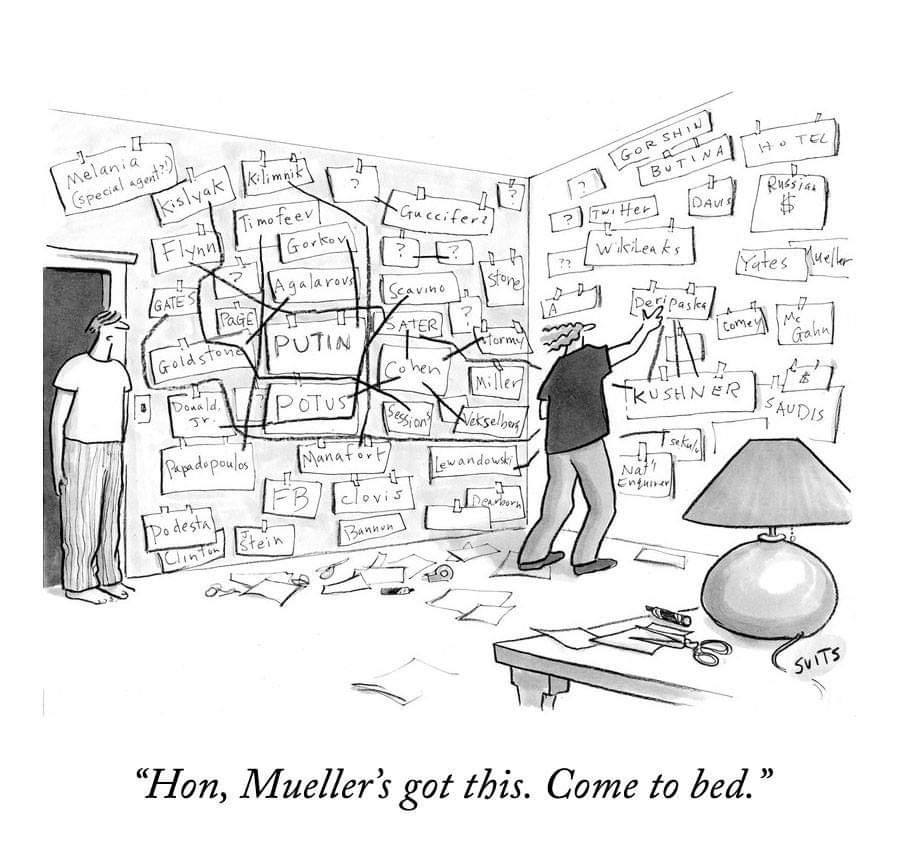 Melania
(special agent?!)
Kislyak
Kilimnik
?
Guccifer2
?
Timofeev
Gorkov
Flynn
?
?
?
Agalarovs
Scavino
Stone
GATES
PAGE
PUTIN
SATER
?
Stormy
Goldstone
Cohen
Miller
Donald,
Jr.
?
POTUS
Sessions
Vekselberg
Papadopoulos
Manafort
Lewandowski
FB
Clovis
Dearborn
Podesta
Clinton
Stein
Bannon
GORSHIN
BUTINA
HOTEL
?
DAVIS
Russian
$
?
Twitter
WikiLeaks
??
Yates
Mueller
A
Deripaska
Comey
Mc
Gahn
KUSHNER
$
SAUDIS
Nat'l
Enquirer
SUITS
“Hon, Mueller’s got this. Come to bed.”